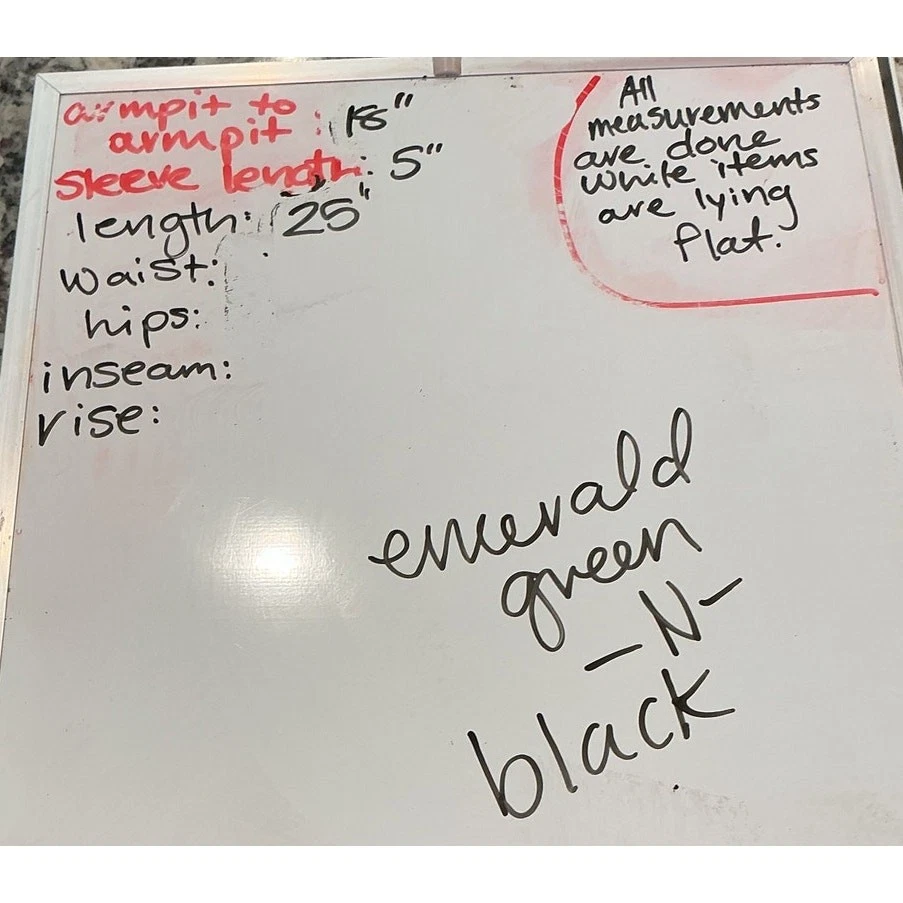 armpit to
armpit : 18"
sleeve length: 5"
length: 25"
waist:
hips:
inseam:
rise:
All
measurements
are done
while items
are lying
flat.
emerald
green
-N-
black